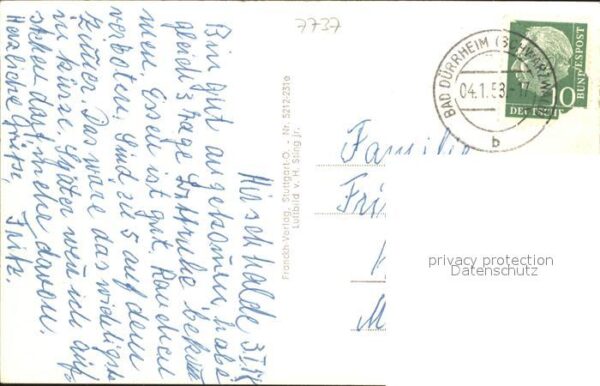 7737
BAD DÜRRHEIM (SCHWARZW
04.1.58.-17
b
10
DEUTSCHE
BUNDESPOST
Hirschhalde 3.1.58
Bin gut angekommen, habe
gleich 3 Tage Bettruhe bekom
men Essen ist gut. Rauchen
verboten. Sind zu 5 auf dem
Zimmer. Das wäre das wichtigste
in kürze. Später wen ich auf
stehen darf mehr davon.
Herzliche Grüße,
Fritz.
Franckh-Verlag, Stuttgart-O. - Nr. 5212-231e
Luftbild v. H. Sting jr.
Familie
Fri
M
privacy protection
Datenschutz